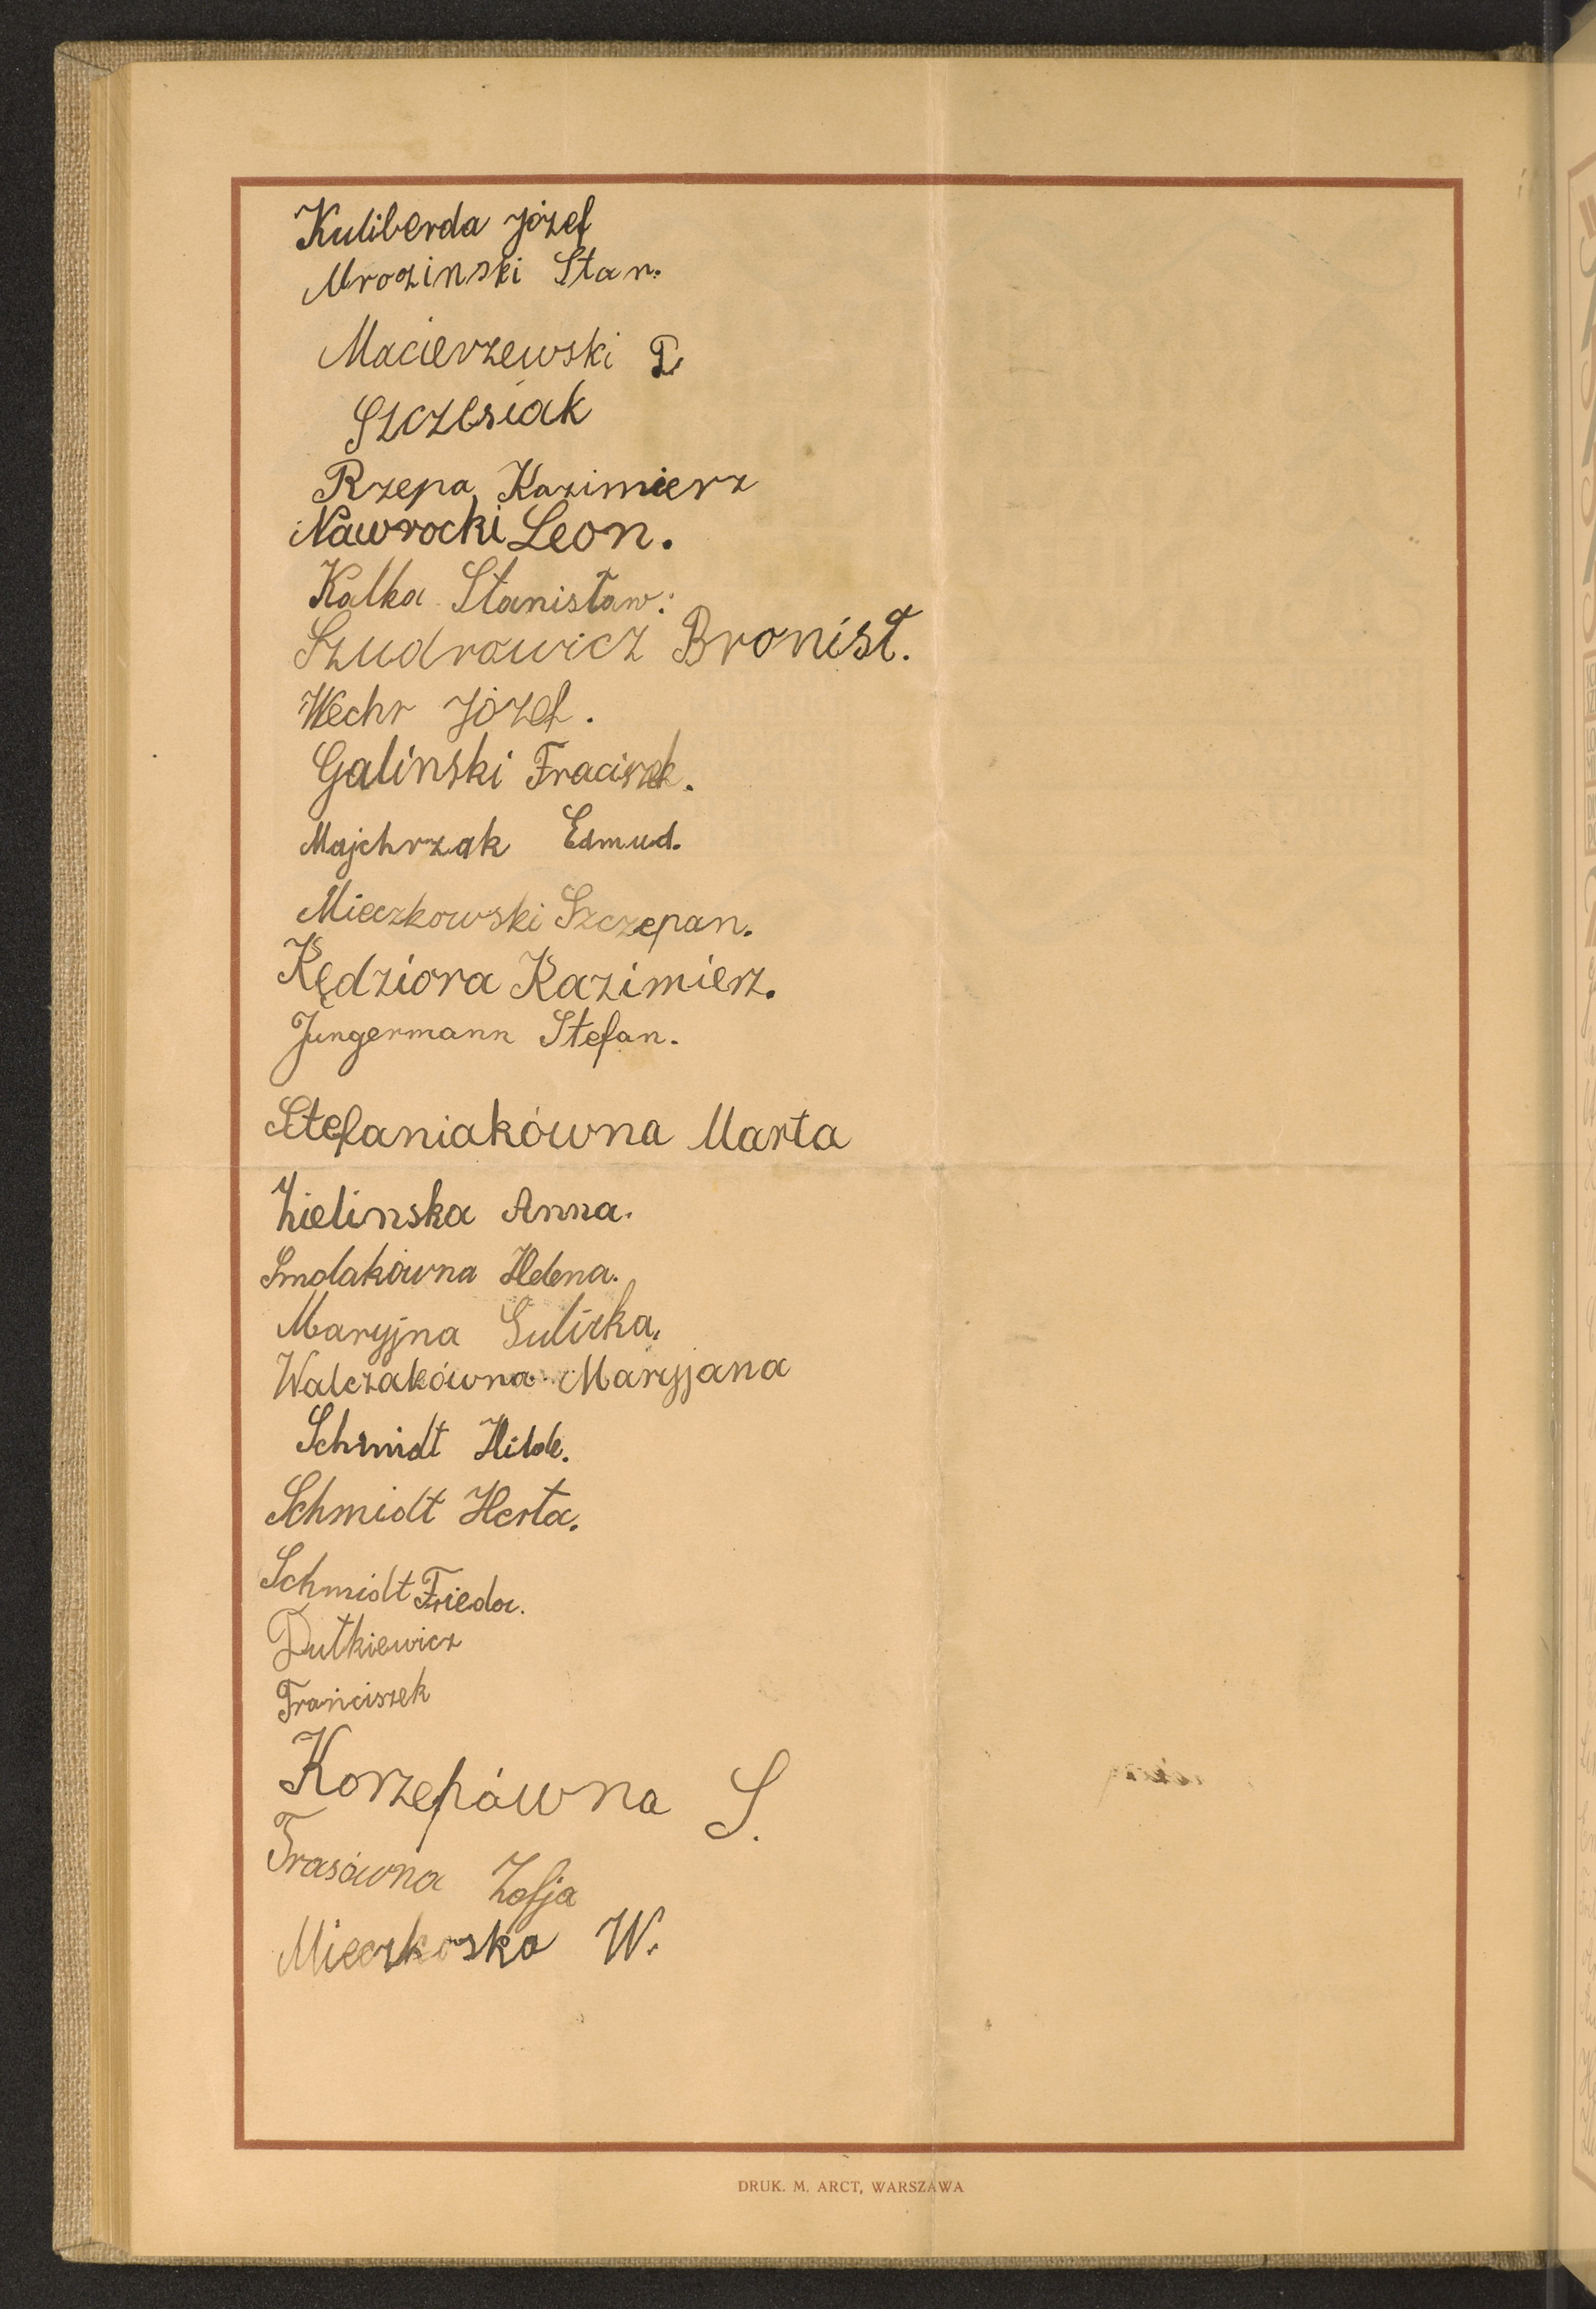 Kuliberda Józef
Mrozinski Stan.
Macierzewski P.
Szczesiak
Rzepa Kazimierz
Nawrocki Leon.
Kalka Stanisław.
Szudrowicz Bronisł.
Wechr Józef.
Galinski Fraciszek.
Majchrzak Edmud.
Mieczkowski Szczepan.
Kędziora Kazimierz.
Jungermann Stefan.
Stefaniakówna Marta
Zielinska Anna.
Smolakówna Helena.
Maryjna Gulirka.
Walczakówna Maryjana
Schmidt Hilde.
Schmidt Herta.
Schmidt Frieda.
Dutkiewicz
Franciszek
Korzepówna S.
Frasówna Zofja
Mieczkoska W.
DRUK. M. ARCT, WARSZAWA